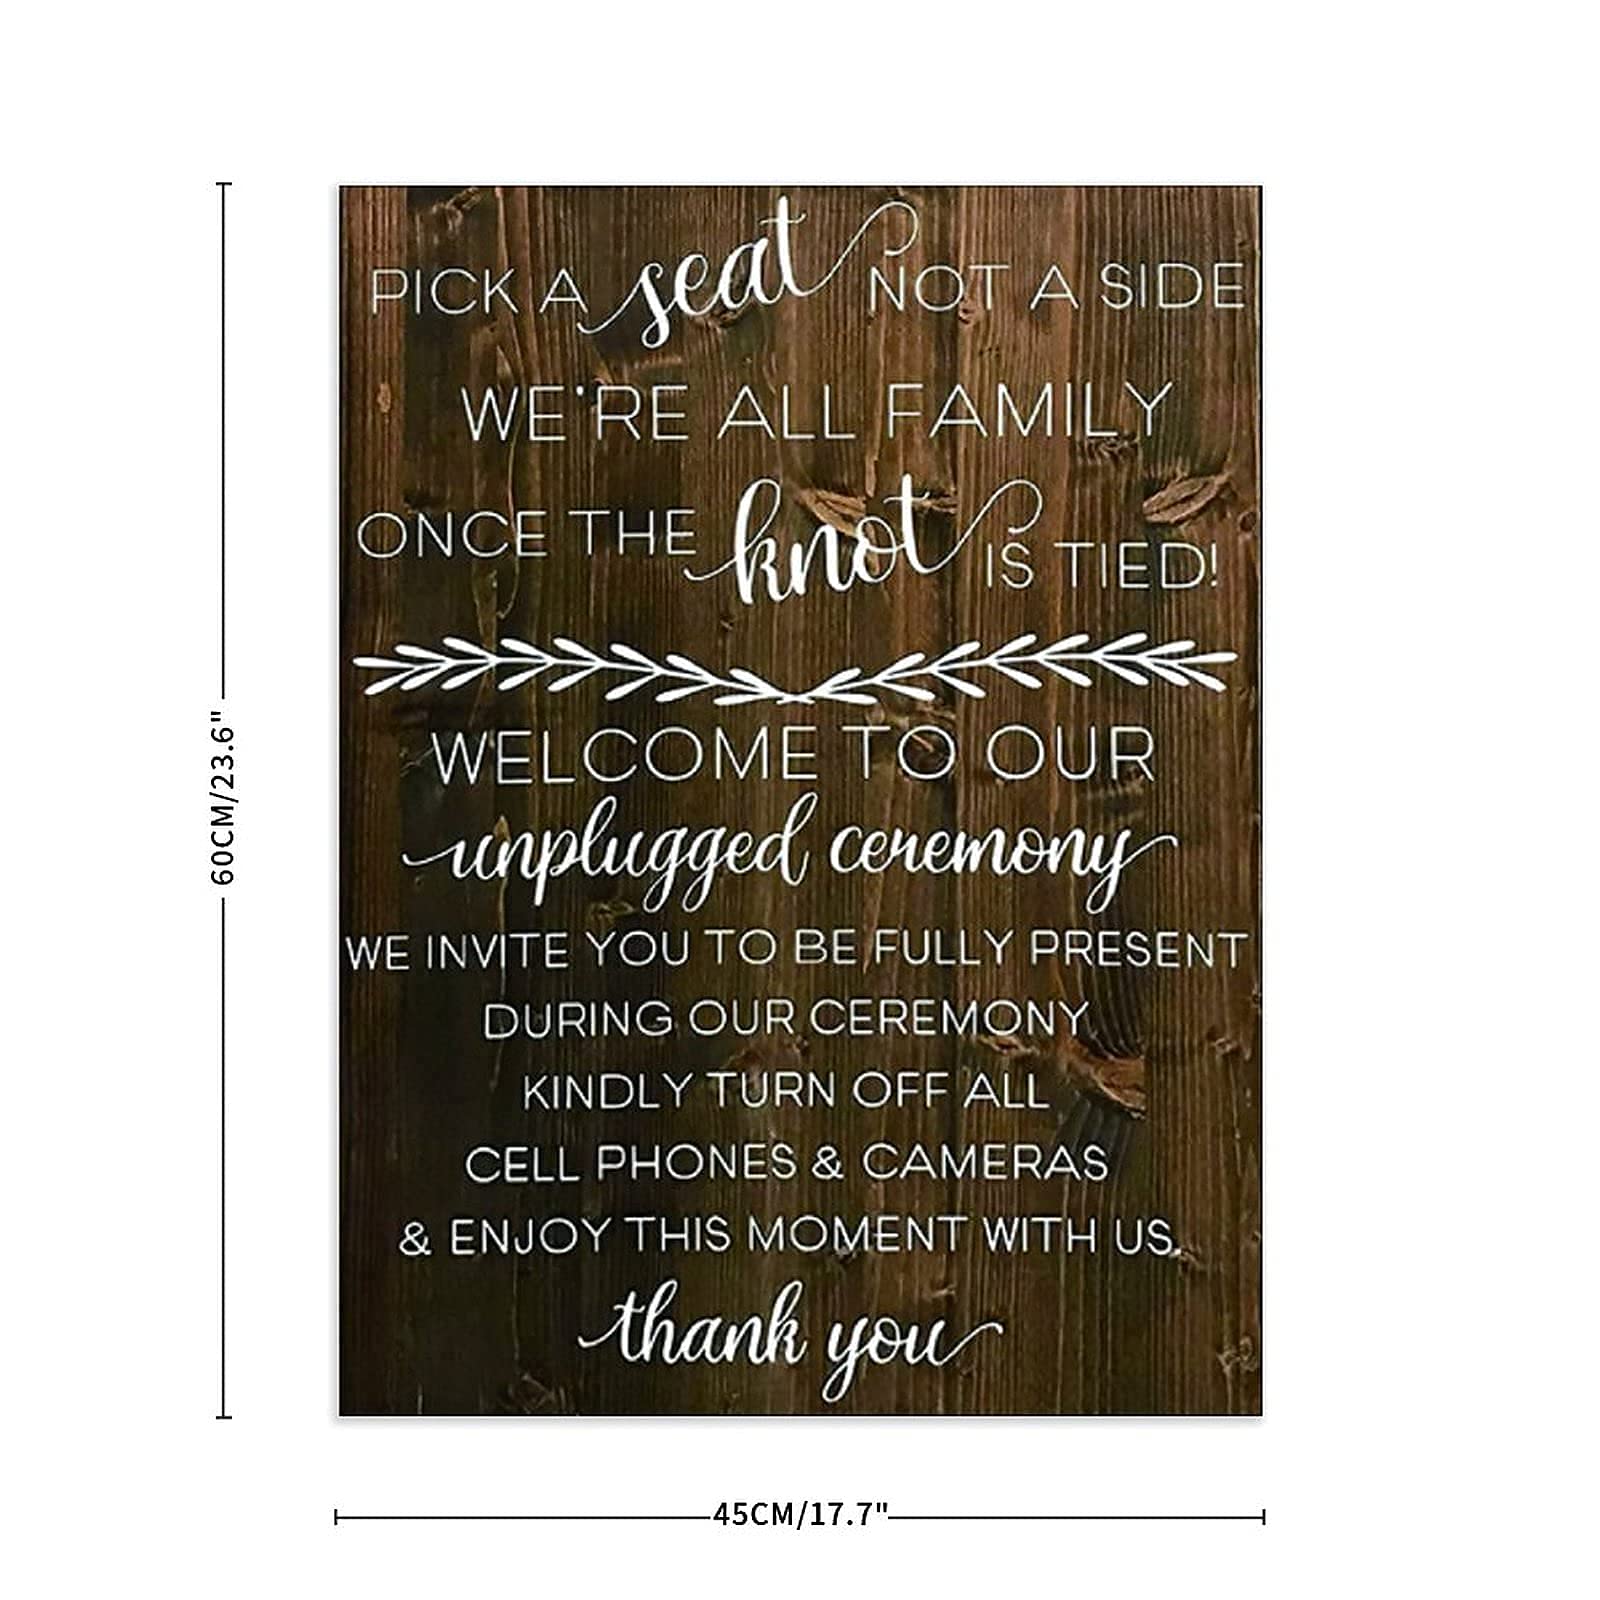 PICK A seat NOT A SIDE
WE'RE ALL FAMILY
ONCE THE knot IS TIED!
WELCOME TO OUR
unplugged ceremony
WE INVITE YOU TO BE FULLY PRESENT
DURING OUR CEREMONY
KINDLY TURN OFF ALL
CELL PHONES & CAMERAS
& ENJOY THIS MOMENT WITH US.
thank you
60CM/23.6"
45CM/17.7"